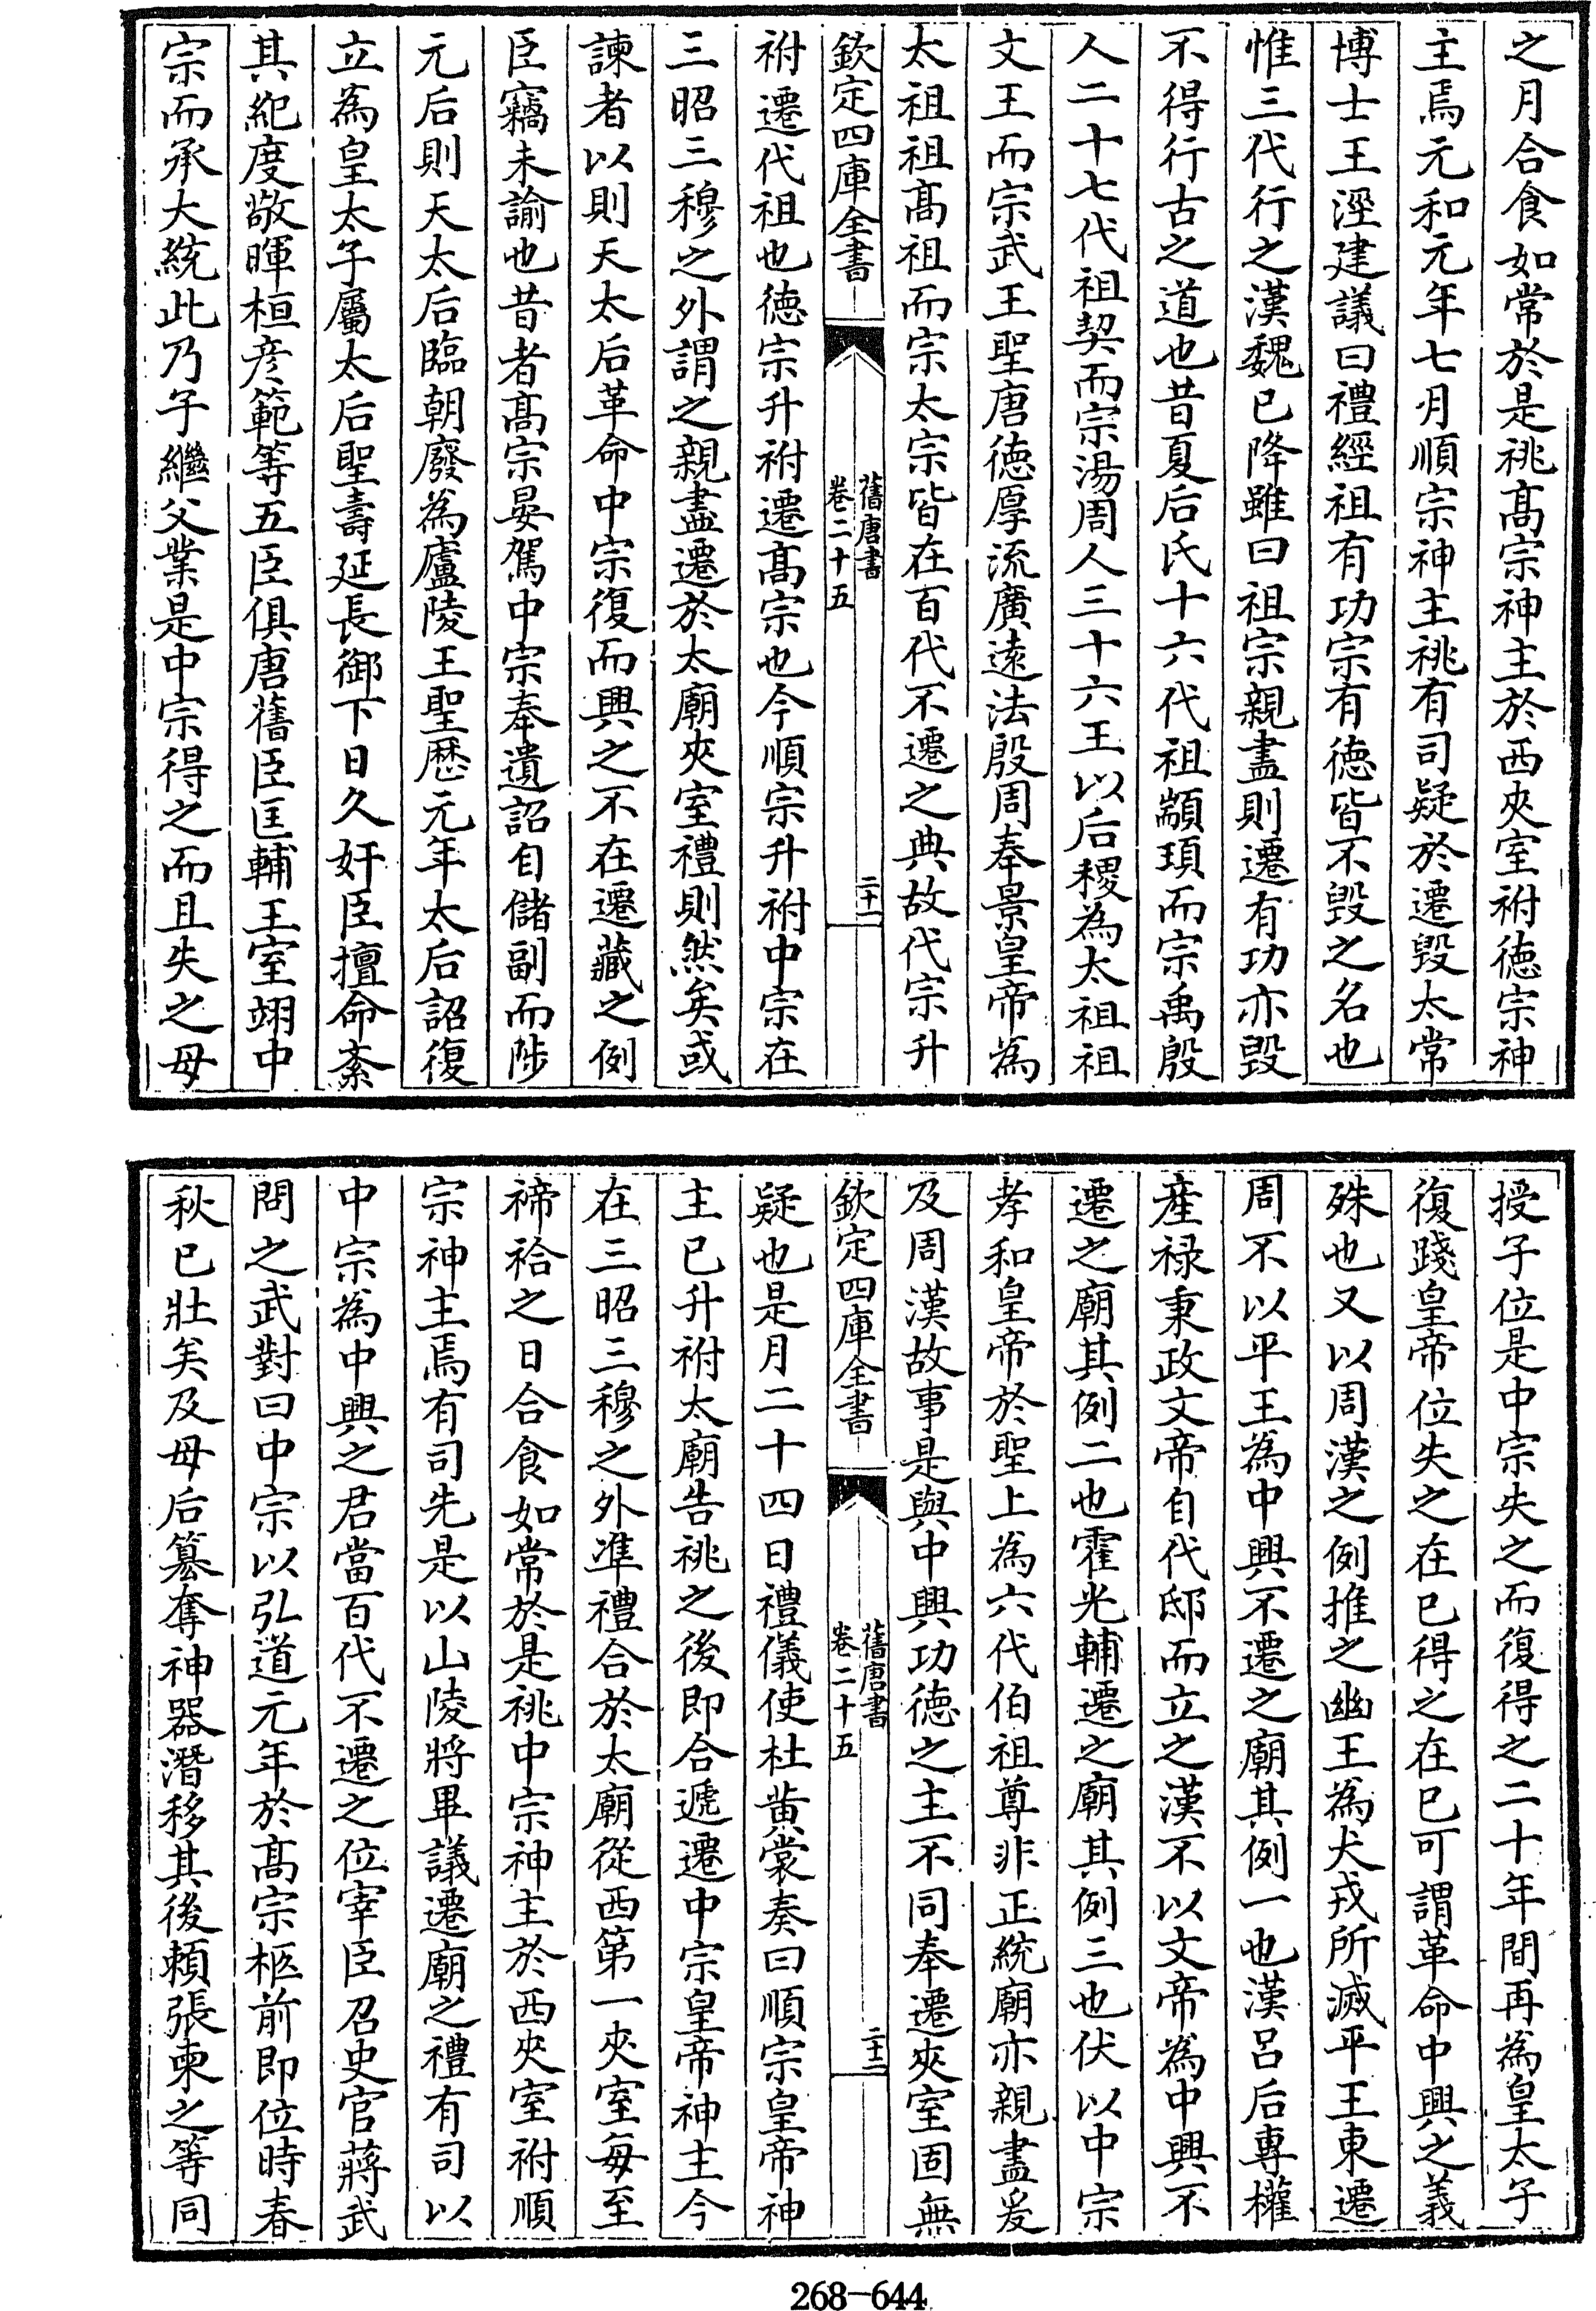 之月合食如常於是祧髙宗神主於西夾室祔徳宗神
主焉元和元年七月順宗神主祧有司疑於遷毀太常
博士王涇建議曰禮經祖有功宗有徳皆不毀之名也
惟三代行之漢魏已降雖曰祖宗親盡則遷有功亦毀
不得行古之道也昔夏后氏十六代祖顓頊而宗禹殷
人二十七代祖契而宗湯周人三十六王以后稷為太祖祖
文王而宗武王聖唐徳厚流廣逺法殷周奉景皇帝為
太祖祖髙祖而宗太宗皆在百代不遷之典故代宗升
欽定四庫全書
舊唐書
卷二十五
二十一
祔遷代祖也徳宗升祔遷髙宗也今順宗升祔中宗在
三昭三穆之外謂之親盡遷於太廟夾室禮則然矣或
諫者以則天太后革命中宗復而興之不在遷藏之例
臣竊未諭也昔者髙宗晏駕中宗奉遺詔自儲副而陟
元后則天太后臨朝廢為廬陵王聖厯元年太后詔復
立為皇太子屬太后聖壽延長御下日久奸臣擅命紊
其紀度敬暉桓彦範等五臣俱唐舊臣匡輔王室翊中
宗而承大統此乃子繼父業是中宗得之而且失之母
授子位是中宗失之而復得之二十年間再為皇太子
復踐皇帝位失之在已得之在已可謂革命中興之義
殊也又以周漢之例推之幽王為犬戎所滅平王東遷
周不以平王為中興不遷之廟其例一也漢呂后專權
産禄秉政文帝自代邸而立之漢不以文帝為中興不
遷之廟其例二也霍光輔遷之廟其例三也伏以中宗
孝和皇帝於聖上為六代伯祖尊非正統廟亦親盡爰
及周漢故事是與中興功徳之主不同奉遷夾室固無
欽定四庫全書
舊唐書
卷二十五
二十二
疑也是月二十四日禮儀使杜黄裳奏曰順宗皇帝神
主已升祔太廟告祧之後即合遞遷中宗皇帝神主今
在三昭三穆之外凖禮合於太廟從西第一夾室每至
禘祫之日合食如常於是祧中宗神主於西夾室祔順
宗神主焉有司先是以山陵將畢議遷廟之禮有司以
中宗為中興之君當百代不遷之位宰臣召史官蔣武
問之武對曰中宗以弘道元年於髙宗柩前即位時春
秋已壯矣及母后簒奪神器潛移其後頼張柬之等同
268-644